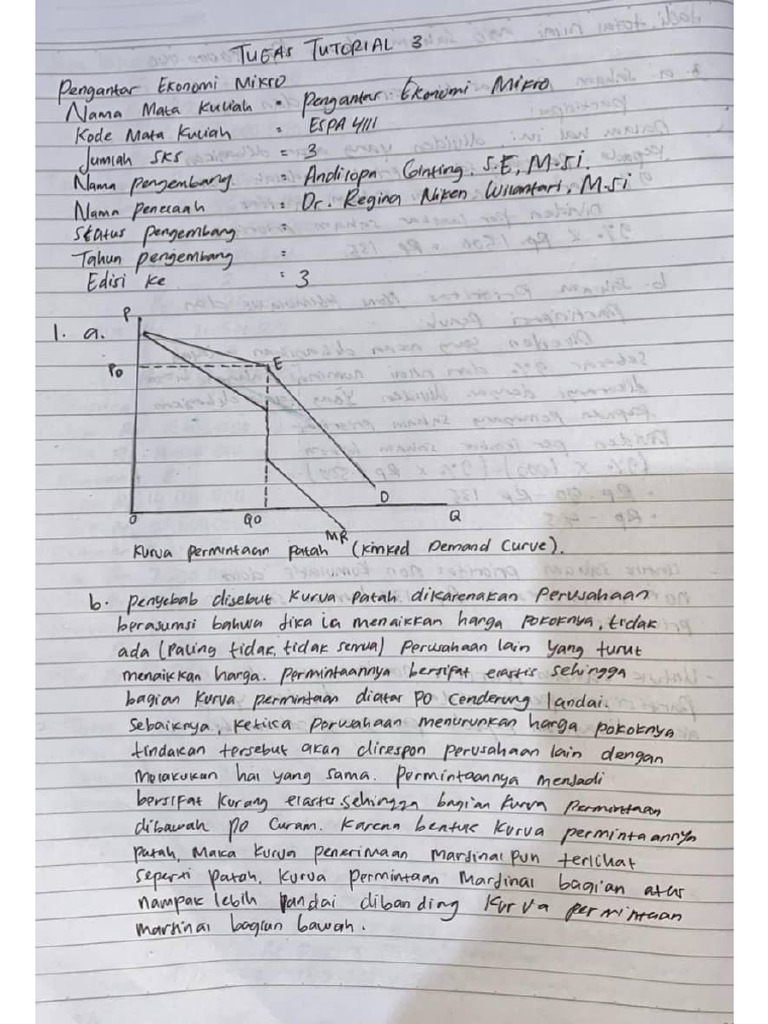 TUGAS TUTORIAL 3
Pengantar Ekonomi Mikro
Nama Mata Kuliah : Pengantar Ekonomi Mikro
Kode Mata Kuliah : ESPA 4111
Jumlah SKS : 3
Nama pengembang : Andilopa Ginting, S.E, M.Si.
Nama Penelaah : Dr. Regina Niken Wilantari, M.Si
Status pengembang :
Tahun pengembang :
Edisi Ke : 3
1. a.
P
P0
E
D
0
Q0
MR
Q
Kurva permintaan patah (Kinked Demand Curve).
b. penyebab disebut kurva patah dikarenakan perusahaan
berasumsi bahwa jika ia menaikkan harga pokoknya, tidak
ada (paling tidak, tidak semua) perusahaan lain yang turut
menaikkan harga. permintaannya bersifat elastis sehingga
bagian kurva permintaan diatas P0 cenderung landai.
Sebaiknya, ketika perusahaan menurunkan harga pokoknya
tindakan tersebut akan direspon perusahaan lain dengan
melakukan hal yang sama. permintaannya menjadi
bersifat kurang elastis. sehingga bagian kurva permintaan
dibawah P0 curam. Karena bentuk kurva permintaannya
patah, Maka kurva penerimaan marginal pun terlihat
seperti patah. kurva permintaan Marginal bagian atas
nampak lebih landai dibanding kurva permintaan
marginal bagian bawah.